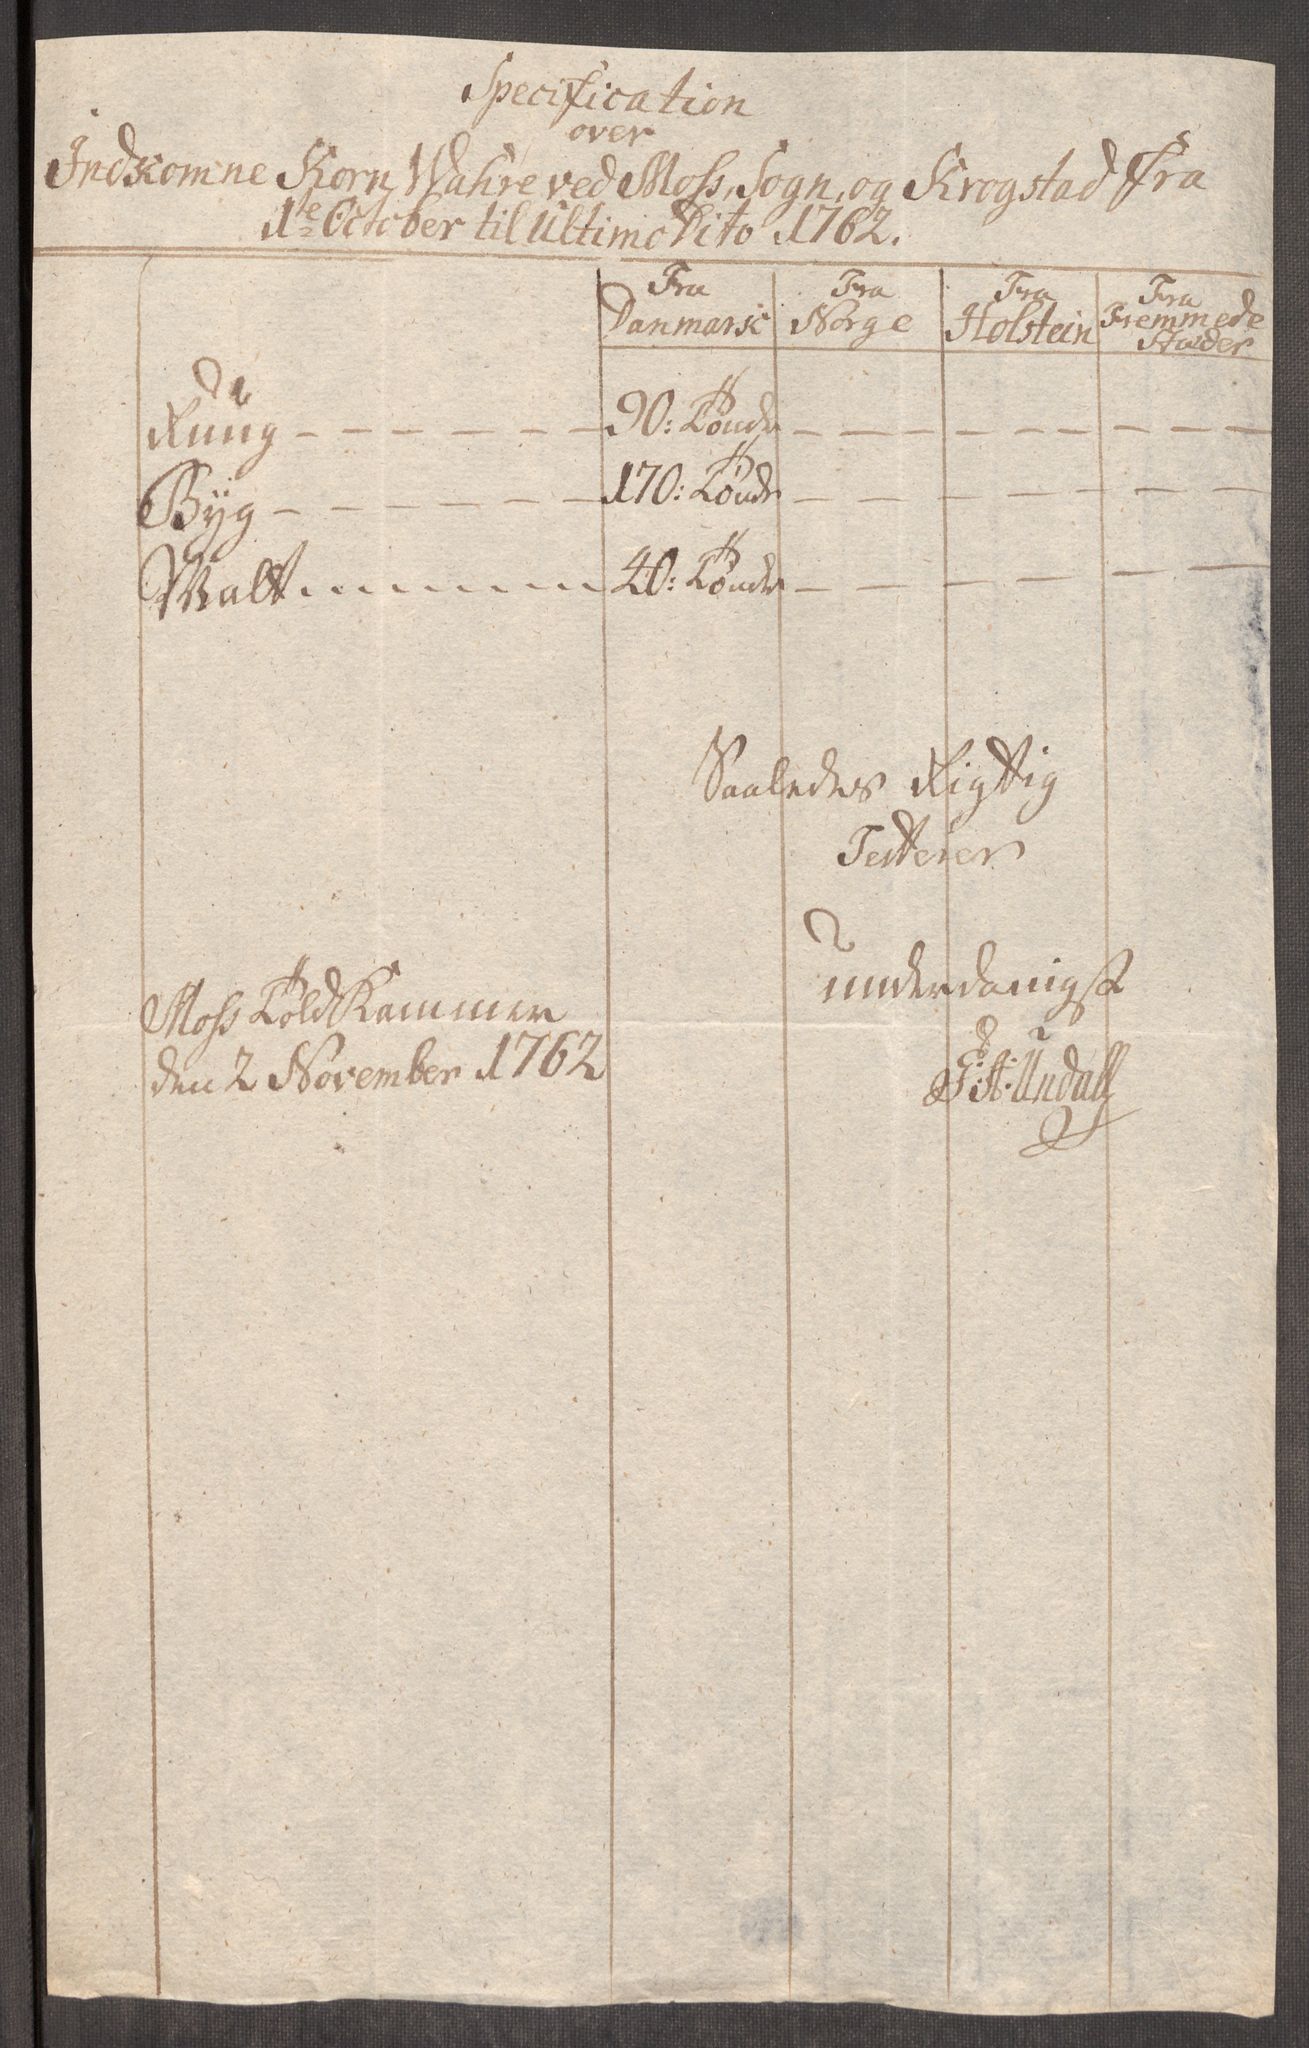 Specification
over
Indkomne Korn Wahre ved Moss, Sogn, og Krogstad Fra
1te October til Ultimo Dito 1762.
Fra Danmark Fra Norge Fra Holstein Fra Fremmede Stæder
Rug 90: Tønder
Byg 170: Tønder
Malt 40: Tønder
Saaledes Rigttig
Testerer
underdanigst
Moss Told Kammer
den 2 November 1762